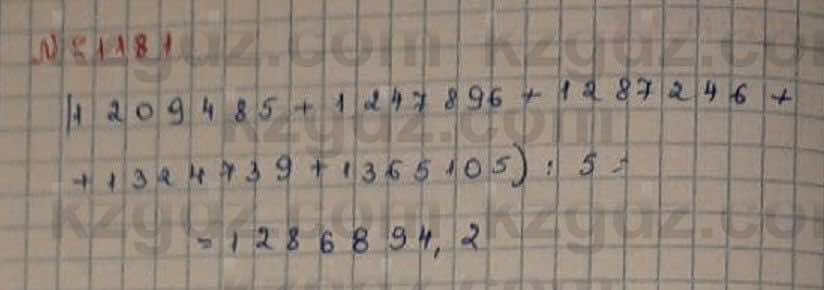 № 1181
(1209485+1247896+1287246+
+1324739+1365105):5=
=1286894,2
kzgdz.com kzgdz.com
kzgdz.com
kzgdz.com kzgdz.com